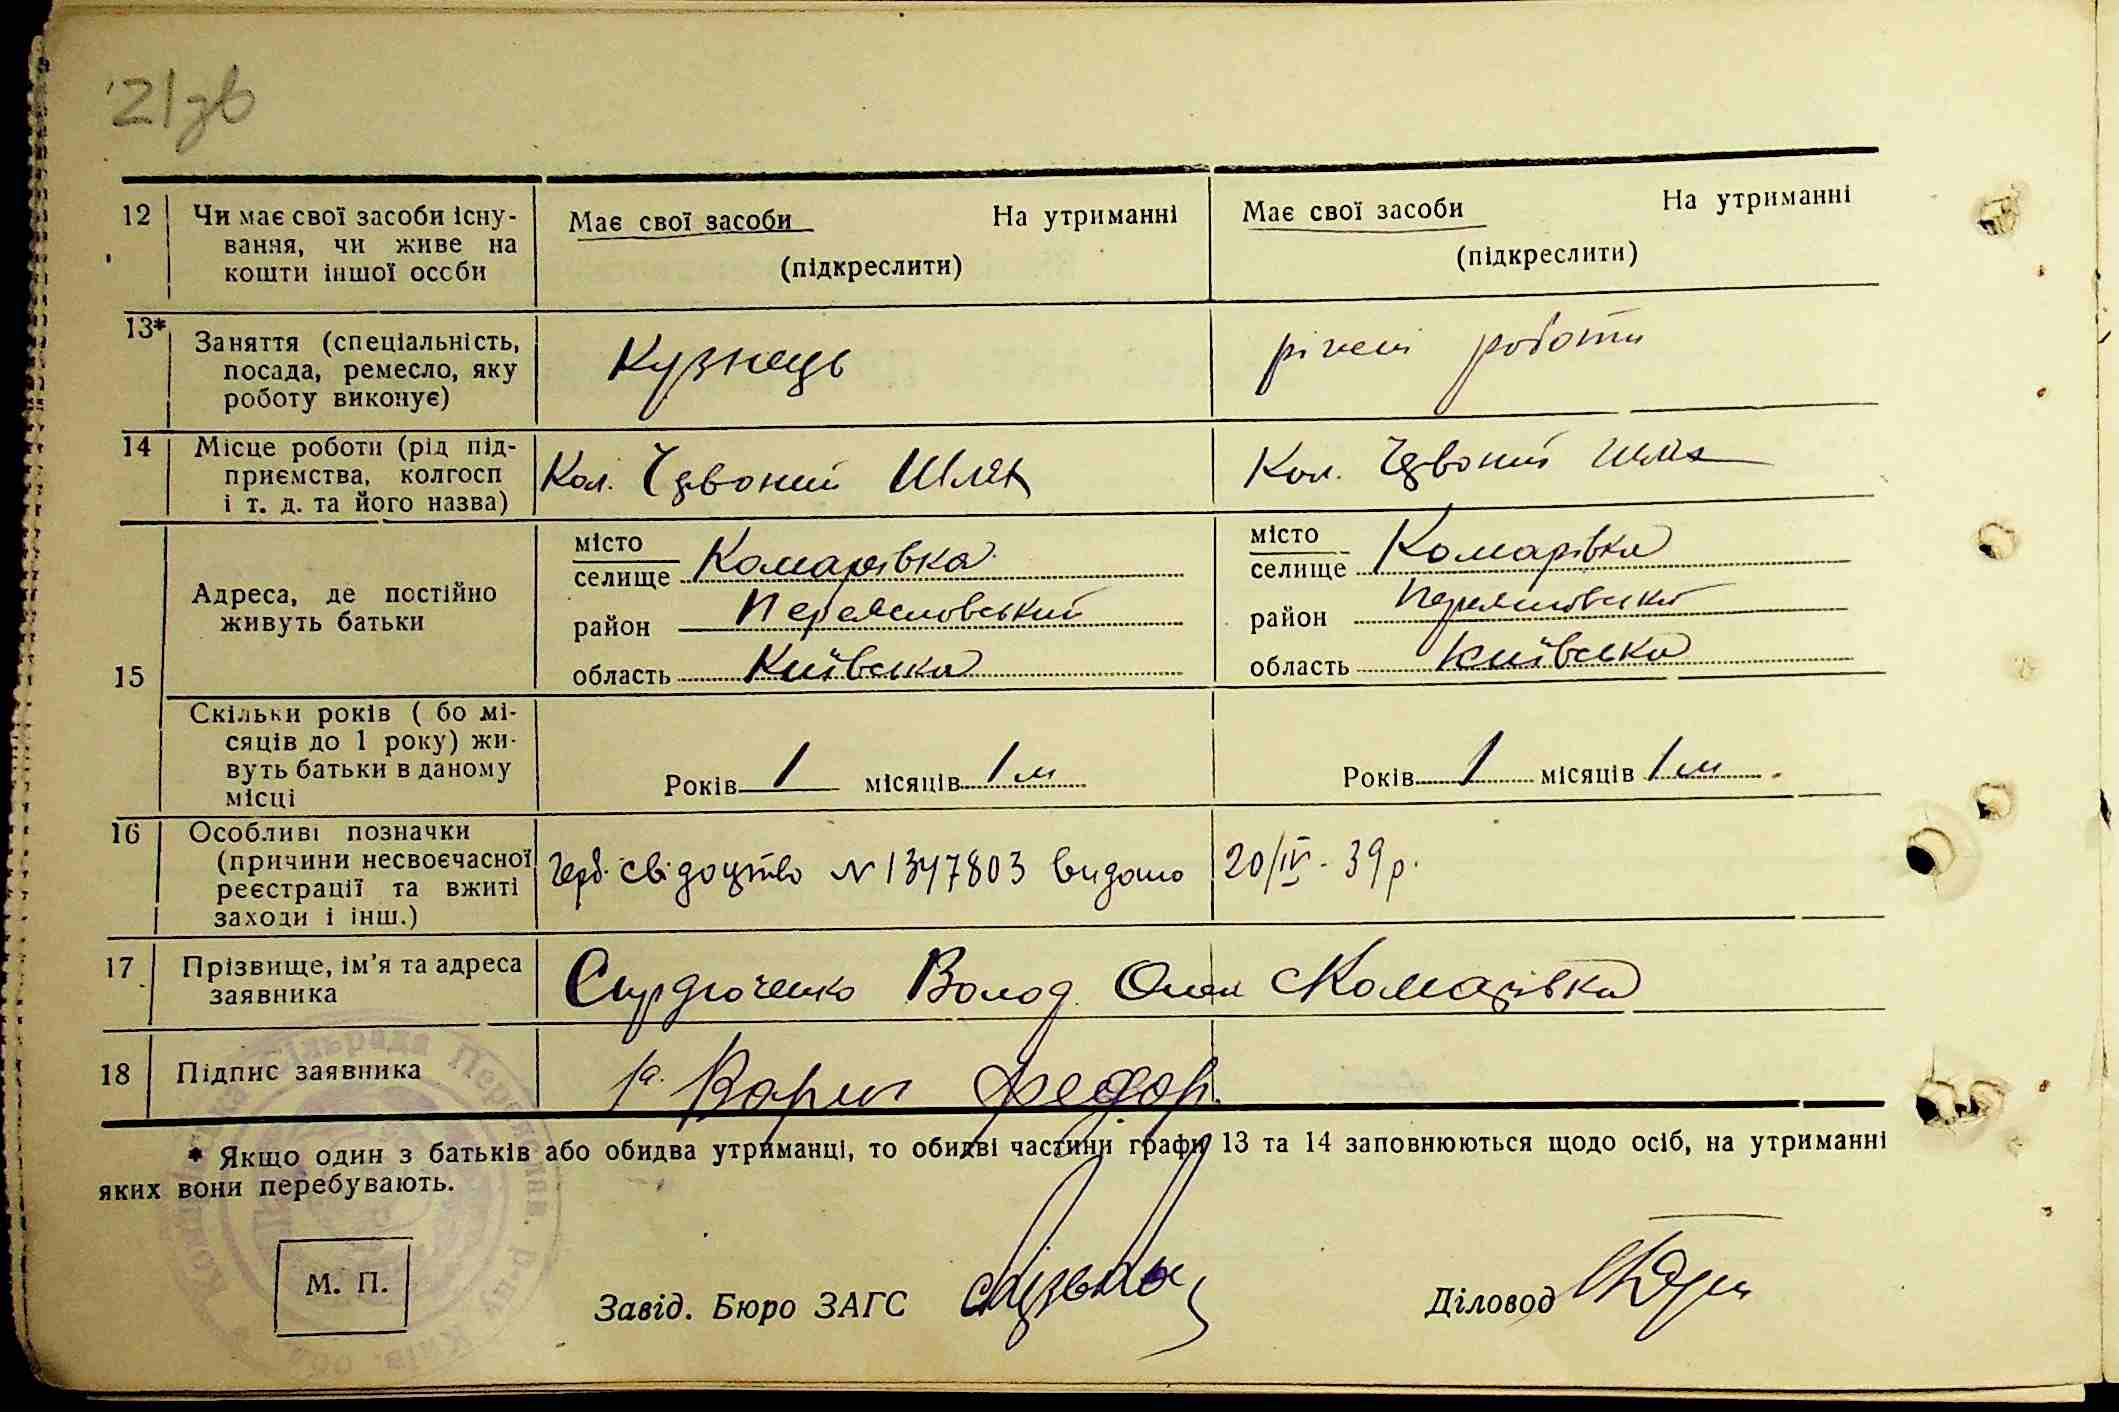 21зв
12 Чи має свої засоби існу-
вання, чи живе на
кошти іншої особи
Має свої засоби На утриманні
(підкреслити)
Має свої засоби На утриманні
(підкреслити)
13* Заняття (спеціальність,
посада, ремесло, яку
роботу виконує)
Кузнець
різні роботи
14 Місце роботи (рід під-
приємства, колгосп
і т. д. та його назва)
Кол. Червоний Шлях
Кол. Червоний Шлях
15 Адреса, де постійно
живуть батьки
місто
селище Комарівка
район Переяславський
область Київська
місто
селище Комарівка
район Переяславський
область Київська
Скільки років ( бо мі-
сяців до 1 року) жи-
вуть батьки в даному
місці
Років 1 місяців 1 м
Років 1 місяців 1 м
16 Особливі позначки
(причини несвоєчасної
реєстрації та вжиті
заходи і інш.)
Герб. свідоцтво N 1347803 видано 20/IV - 39 р.
17 Прізвище, ім'я та адреса
заявника
Волод. с Комарівка
18 Підпис заявника
* Якщо один з батьків або обидва утриманці, то обидві частини графи 13 та 14 заповнюються щодо осіб, на утриманні
яких вони перебувають.
М. П.
Завід. Бюро ЗАГС
Діловод